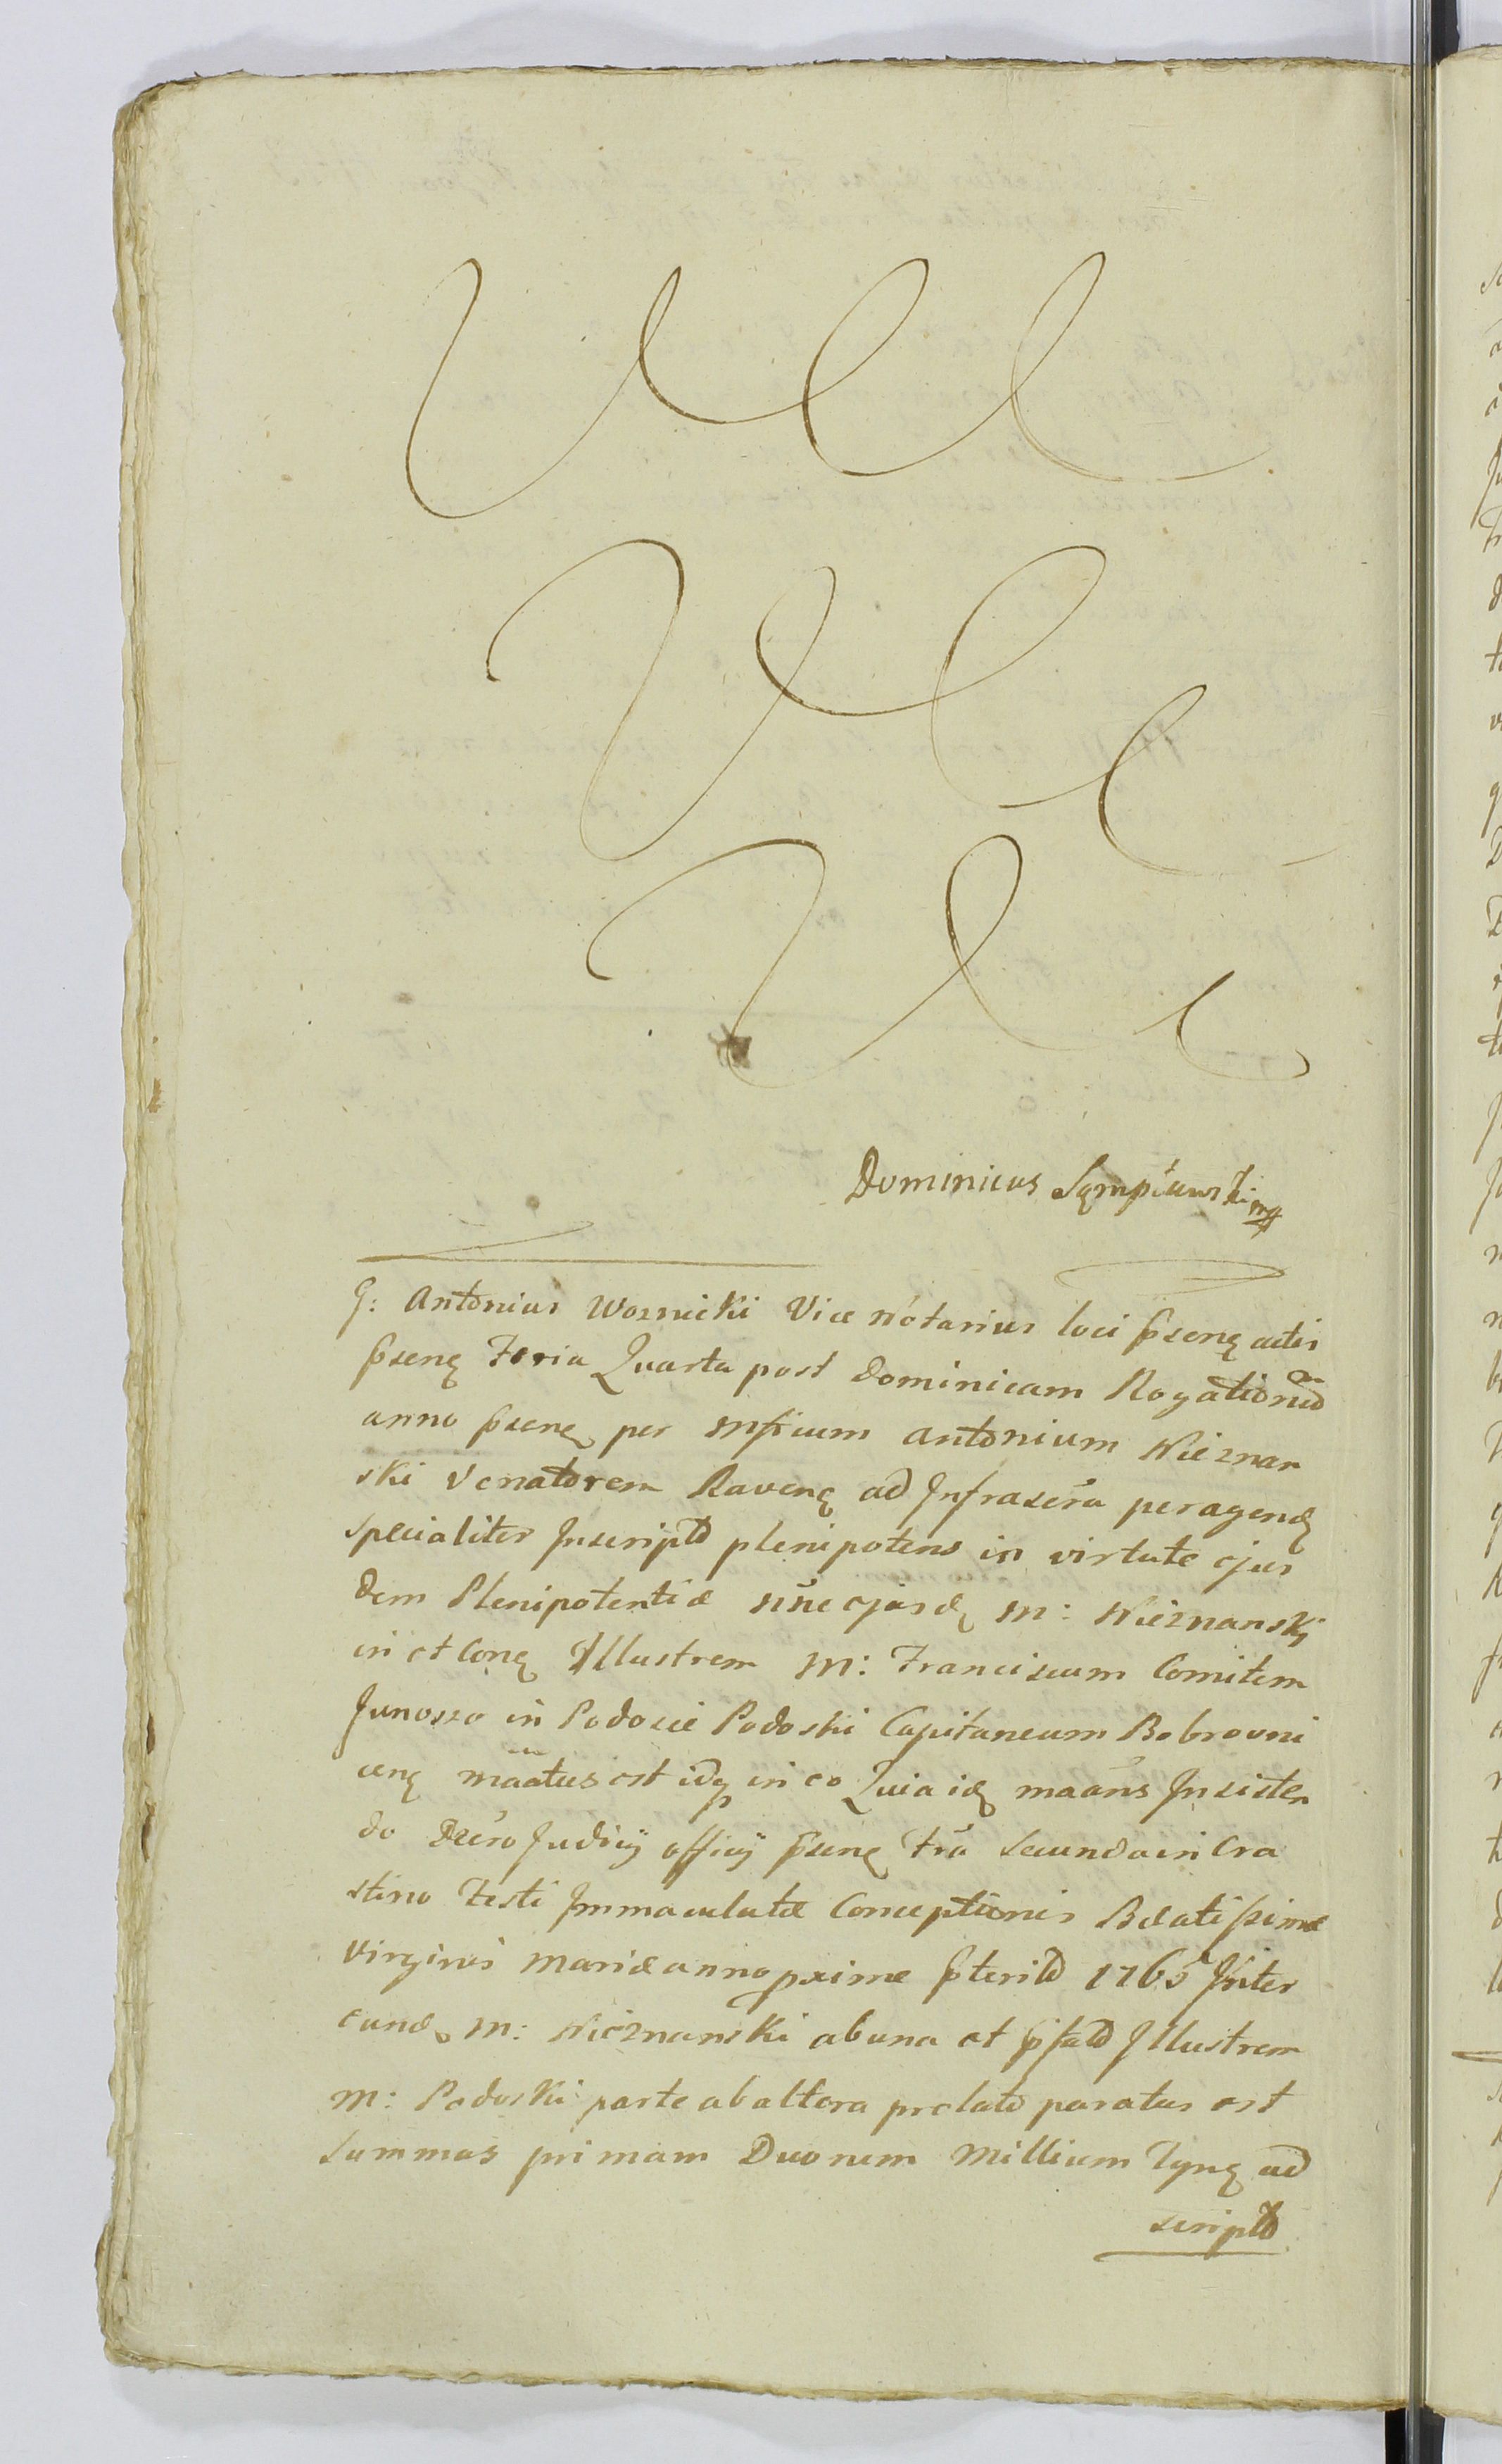 Dominicus Sąmpławski mp
G: Antonius Woznicki Vice Notarius loci pseną actis
pseną Feria Quarta post Dominicam Rogationũ
anno pseną per Mficum Antonium Nieznan
ski Venatorem Raveną ad Infrascra peragend
specialiter Inscripto plenipotens in virtute ejus
dem Plenipotentiæ nñe ejusd M: Nieznanskj
in et Coną Illustrem M: Franciscum Comitem
Junosza in Podosie Podoski Capitaneum Bobrovni
ceną est idq in eo Quia id Insisten
do Decro Judicij officij pseną Fra Secunda in Cra
stino Festi Immaculatæ Conceptionis Beatissimæ
Virginis Mariæ anno pxime pterito 1765 Inter
eund M: Nieznanski ab una et pfato Illustrem
M: Podoski parte ab altera prolato paratus est
Summas primam Duorum Millium Tyną ad
scripto